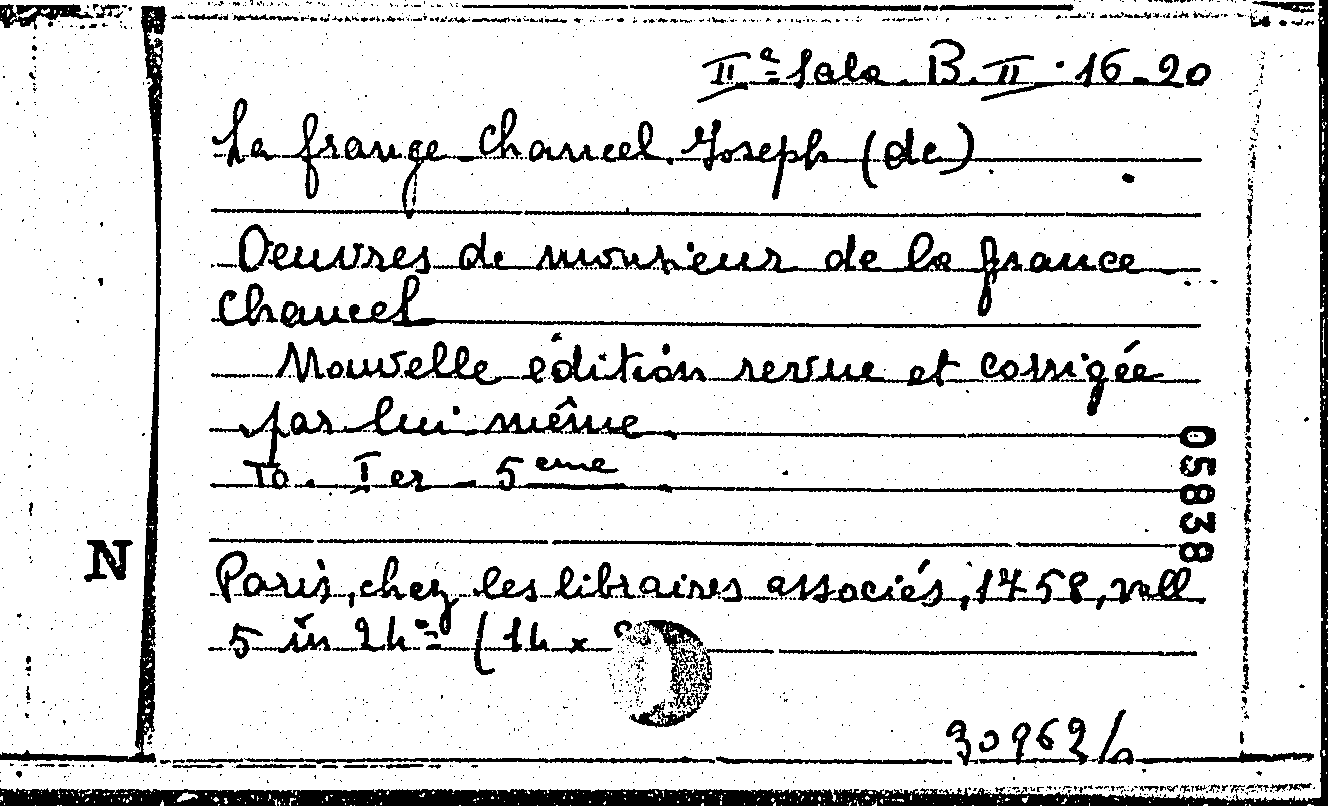 IIª Sala. B. II. 16-20
La frange-Chancel. Joseph (de)
Oeuvres de monsieur de la france
Chancel
Nouvelle édition revue et corrigée
par lui même.
To. I er - 5 eme
05838
N
Paris, chez les libraires associés, 1758, voll
5 in 24º (14 x
30962/